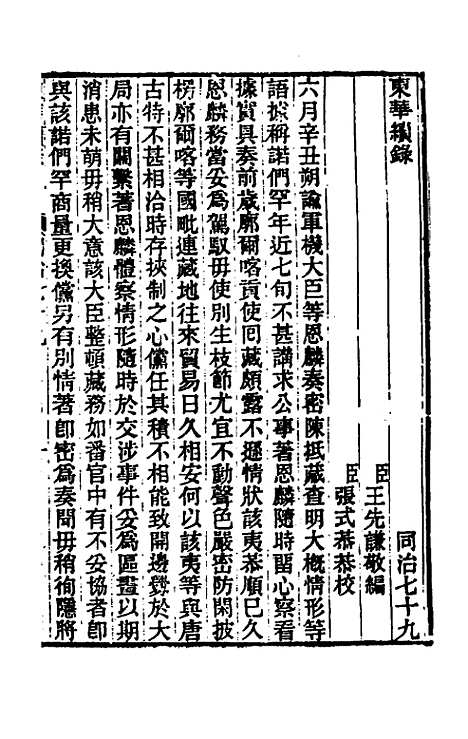 東華續錄　同治七十九
臣王先謙敬編
臣張式恭恭校
六月辛丑朔諭軍機大臣等恩麟奏密陳抵藏查明大概情形等
語據稱諾們罕年近七旬不甚講求公事著恩麟隨時留心察看
據實具奏前歲廓爾喀貢使囘藏頗露不遜情狀該夷恭順已久
恩麟務當妥爲駕馭毋使別生枝節尤宜不動聲色嚴密防閑披
楞廓爾喀等國毗連藏地往來貿易日久相安何以該夷等與唐
古特不甚相洽時存挾制之心儻任其積不相能致開邊釁於大
局亦有關繫著恩麟體察情形隨時於交涉事件妥爲區畫以期
消患未萌毋稍大意該大臣整頓藏務如番官中有不妥協者卽
與該諾們罕商量更換儻另有別情著卽密爲奏聞毋稍徇隱將